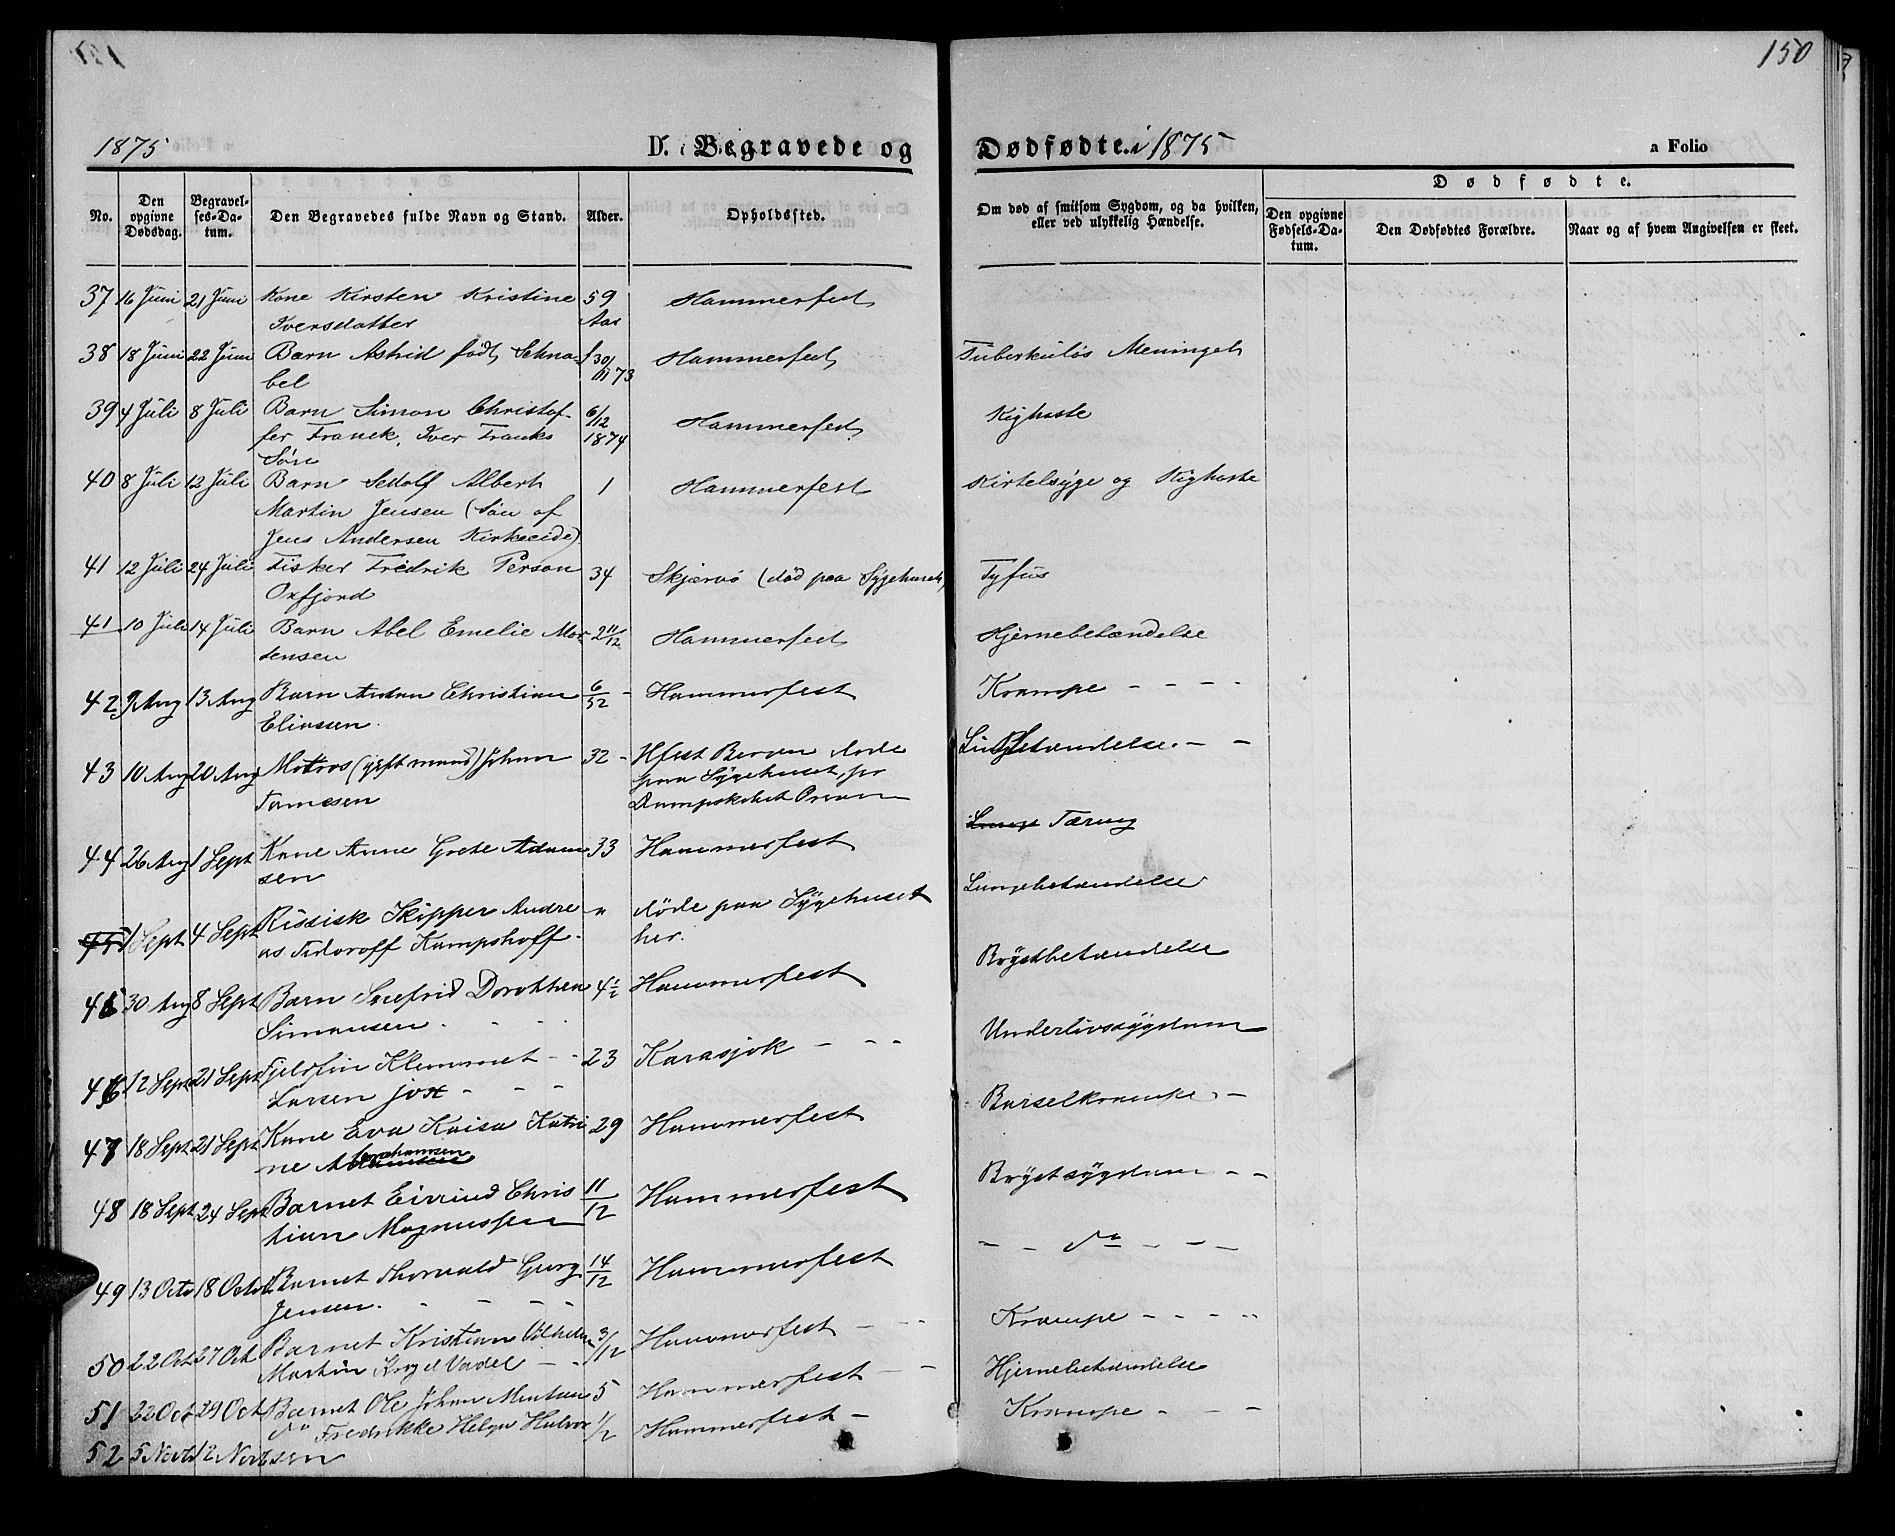 150
1875
D. Begravede og
Dødfødte. i 1875
a Folio
No.
Den opgivne Dødsdag.
Begravelses-Datum.
Den Begravedes fulde Navn og Stand.
Alder.
Opholdssted.
Om død af smitsom Sygdom, og da hvilken, eller ved ulykkelig Hændelse.
Dødfødte.
Den opgivne Fødsels-Datum.
Den Dødfødtes Forældre.
Naar og af hvem Angivelsen er skeet.
37 16 Juni 21 Juni Kone Kirsten Kristine 59 Hammerfest
Iversdatter Aar
38 18 Juni 22 Juni Barn Astrid født Schna- f 30/11 73 Hammerfest Tuberkuløs Meninget
bel
39 4 Juli 8 Juli Barn Simon Christof- 6/12 1874 Hammerfest Kighoste
fer Franck, Iver Francks
Søn
40 8 Juli 12 Juli Barn Sedolf Albert 1 Hammerfest Kirtelsyge og Kighoste
Martin Jensen (Søn af
Jens Andersen Kirkeeide)
41 12 Juli 24 Juli Fisker Fredrik Person 34 Skjervø (død paa Sygehuset) Tyfus
Oxfjord
41 10 Juli 14 Juli Barn Abel Emelie Mor- 2 11/12 Hammerfest Hjernebetændelse
tensen
42 9 Aug 13 Aug Barn Anton Christian 6/52 - Hammerfest Krampe - - - -
Eliassen.
43 10 Aug 20 Aug Matros (gift mand) Johan 32 - Hfest Bergen døde Lungebetændelse. - -
paa Sygehuset, fra
Tomesen Dampskibet
44 26 Aug 1 Sept Kone Anne Grete Adam 33 Hammerfest Lunge Tæring
sen
45 1 Sept 4 Sept Rissisk Skipper Andre - " døde paa Sygehuset Lungebetændelse
as Fidoroff Kampshoff - her.
45 30 Aug 8 Sept Barn Snefrid Dorothea 4½ Hammerfest Brystbetændelse
Simonsen. - - -
46 12 Sept 21 Sept Fjeldfin Klemmet - - 23 Karasjok - - - Underlivssygdom
Larsen Jox - - -
47 18 Sept 21 Sept Kone Eva Kaisa Katri 29 Hammerfest Barselkrampe. -
ne Abrahamsen
48 18 Sept 24 Sept Barnet Eivind Chris 11/12 Hammerfest Brystsygdom - -
tian Magnussen
49 13 Octo 18 Octo Barnet Thorvald Georg 14/12 Hammerfest - - do - - -
Jensen. - - - -
50 22 Oct 27 Oct Barnet Kristian Vilhelm 3/12 Hammerfest - - - Krampe - - - -
Martin Krogel Vadel - -
51 22 Oct 29 Oct Barnet Ole Johan 5 Hammerfest - - Hjernebetændelse
52 5 Novb 12 Novb do Fredrikke Helga Halvor 1/2 Hammerfest - Krampe - - -
sen